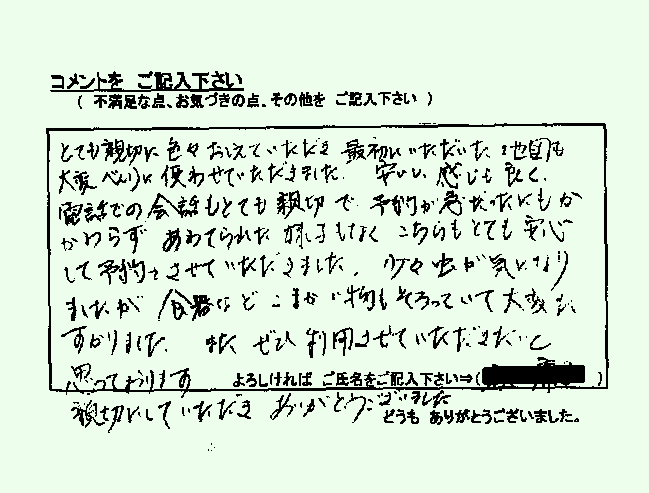 コメントを ご記入下さい
( 不満足な点、お気づきの点、その他を ご記入下さい )
とても親切に色々おしえていただき 最初にいただいた 地図も
大変 べんりに使わせていただきました。 安いし 感じも良く、
電話での会話もとても親切で 予約が急だったにもか
かわらず あわてられた様子もなく こちらもとても安心
して予約させていただきました。 少々虫が気になり
ましたが 食器など こまかい物もそろっていて大変た
すかりました。 また ぜひ利用させていただきたいと
思っております
よろしければ ご氏名をご記入下さい⇒( )
親切にしていただき ありがとうございました
どうも ありがとうございました。